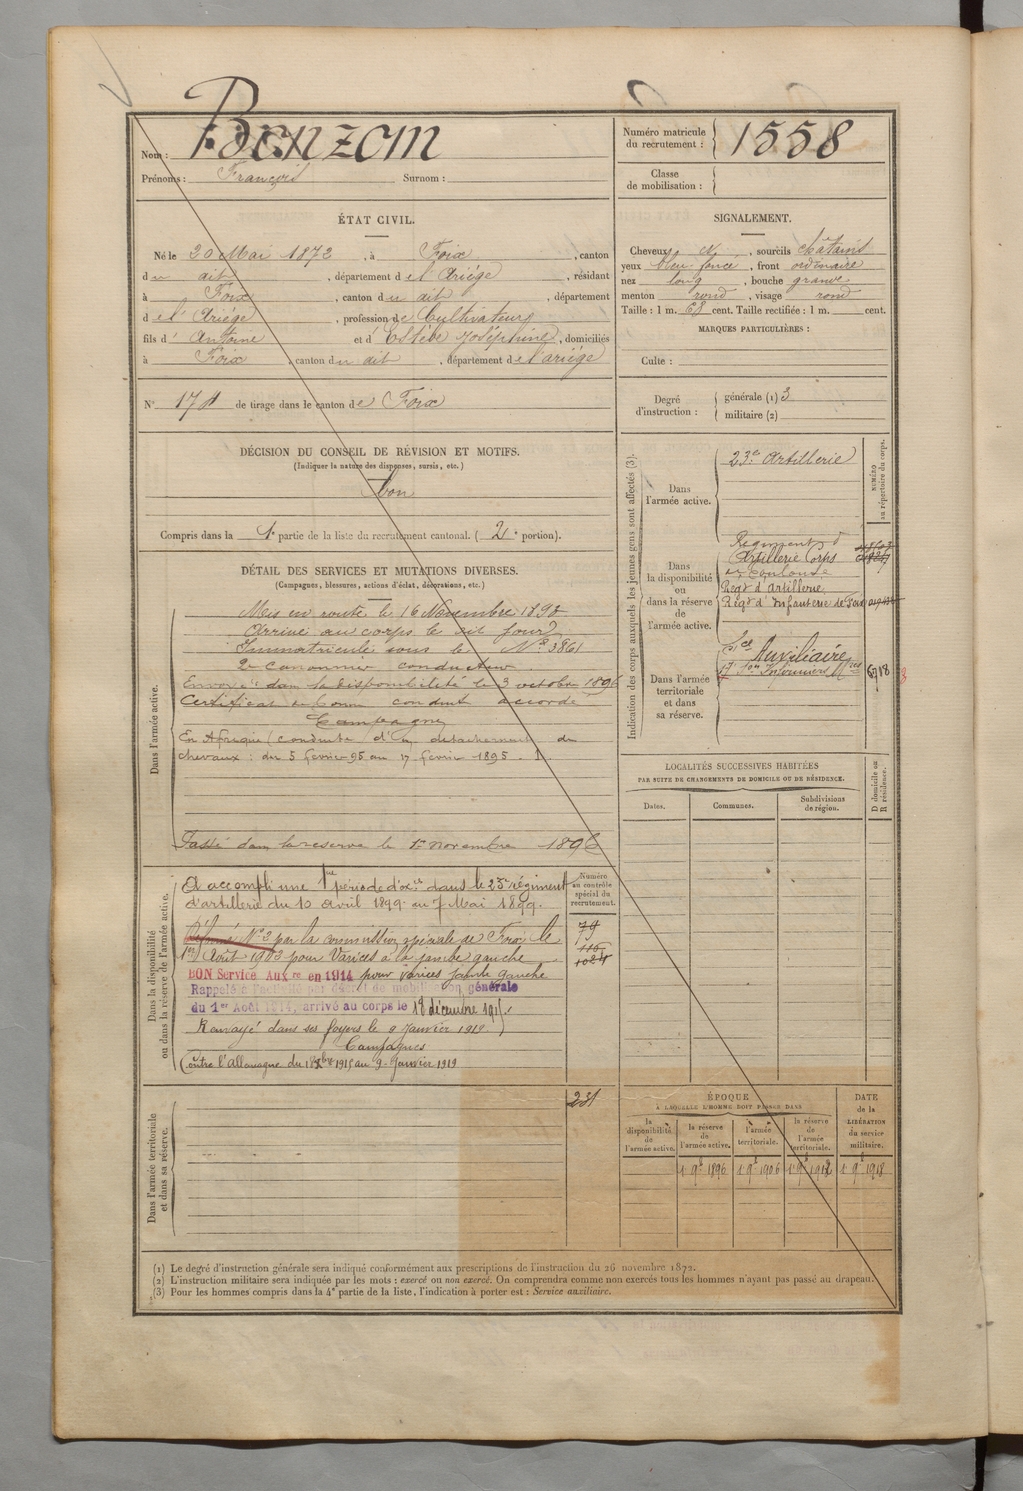 Nom : Banzam
Prénoms : François Surnom :
Numéro matricule du recrutement : 1558
Classe de mobilisation :
ÉTAT CIVIL.
Né le 20 Mai 1872, à Foix, canton
du dit, département de l'Ariège, résidant
à Foix, canton du dit, département
de l'Ariège, profession de Cultivateur
fils d' Antoine et d' Estèbe Joséphine, domiciliés
à Foix, canton du dit, département de l'ariège
N° 174 de tirage dans le canton de Foix
SIGNALEMENT.
Cheveux N, sourcils chatains
yeux bleu foncé, front ordinaire
nez long, bouche grande
menton rond, visage rond
Taille : 1 m. 68 cent. Taille rectifiée : 1 m. cent.
MARQUES PARTICULIÈRES :
Culte :
Degré d'instruction : générale (1) 3
militaire (2)
DÉCISION DU CONSEIL DE RÉVISION ET MOTIFS.
(Indiquer la nature des dispenses, sursis, etc.)
Bon
Compris dans la 1e partie de la liste du recrutement cantonal. (2e portion).
DÉTAIL DES SERVICES ET MUTATIONS DIVERSES.
(Campagnes, blessures, actions d'éclat, décorations, etc.)
Dans l'armée active.
Mis en route le 16 Novembre 1893
Arrivé au corps le dit jour
Immatriculé sous le N° 3861
2e canonnier conducteur
Envoyé dans la disponibilité le 3 octobre 1896
Certificat de bonne conduite accordé
Campagne
En Afrique (conduite d'un détachement de
chevaux : du 5 février 95 au 17 février 1895.
Passé dans la réserve le 1er novembre 1896
Dans la disponibilité ou dans la réserve de l'armée active.
Numéro au contrôle spécial du recrutement.
A accompli une 1re période d'exce dans le 23e régiment
d'artillerie du 10 avril 1899 au 7 Mai 1899.
Réformé N° 2 par la commission spéciale de Foix le
1er Août 1903 pour Varices à la jambe gauche
BON Service Auxre en 1914 pour varices jambe gauche
Rappelé à l'activité par décret de mobilisation générale
du 1er Août 1914, arrivé au corps le 18 décembre 1915.
Renvoyé dans ses foyers le 9 Janvier 1919
Campagnes
Contre l'Allemagne du 18 Xbre 1915 au 9 Janvier 1919
79
116
1084
Dans l'armée territoriale et dans sa réserve.
231
Indication des corps auxquels les jeunes gens sont affectés (3).
NUMÉRO au répertoire du corps.
Dans l'armée active.
23e Artillerie
Dans la disponibilité ou dans la réserve de l'armée active.
Régiment d'
Artillerie Corps
de Toulouse
Régt d'Artillerie
Régt d'Infanterie de Foix
Dans l'armée territoriale et dans sa réserve.
Sce Auxiliaire
17e Son Infirmiers Mres 6718
LOCALITÉS SUCCESSIVES HABITÉES
PAR SUITE DE CHANGEMENTS DE DOMICILE OU DE RÉSIDENCE.
Dates. Communes. Subdivisions de région. D domicile ou R résidence.
ÉPOQUE
À LAQUELLE L'HOMME DOIT PASSER DANS
DATE de la LIBÉRATION du service militaire.
la disponibilité de l'armée active. la réserve de l'armée active. l'armée territoriale. la réserve de l'armée territoriale.
1 9e 1896 1 9e 1906 1 9e 1912 1 9e 1918
(1) Le degré d'instruction générale sera indiqué conformément aux prescriptions de l'instruction du 26 novembre 1872.
(2) L'instruction militaire sera indiquée par les mots : exercé ou non exercé. On comprendra comme non exercés tous les hommes n'ayant pas passé au drapeau.
(3) Pour les hommes compris dans la 4e partie de la liste, l'indication à porter est : Service auxiliaire.